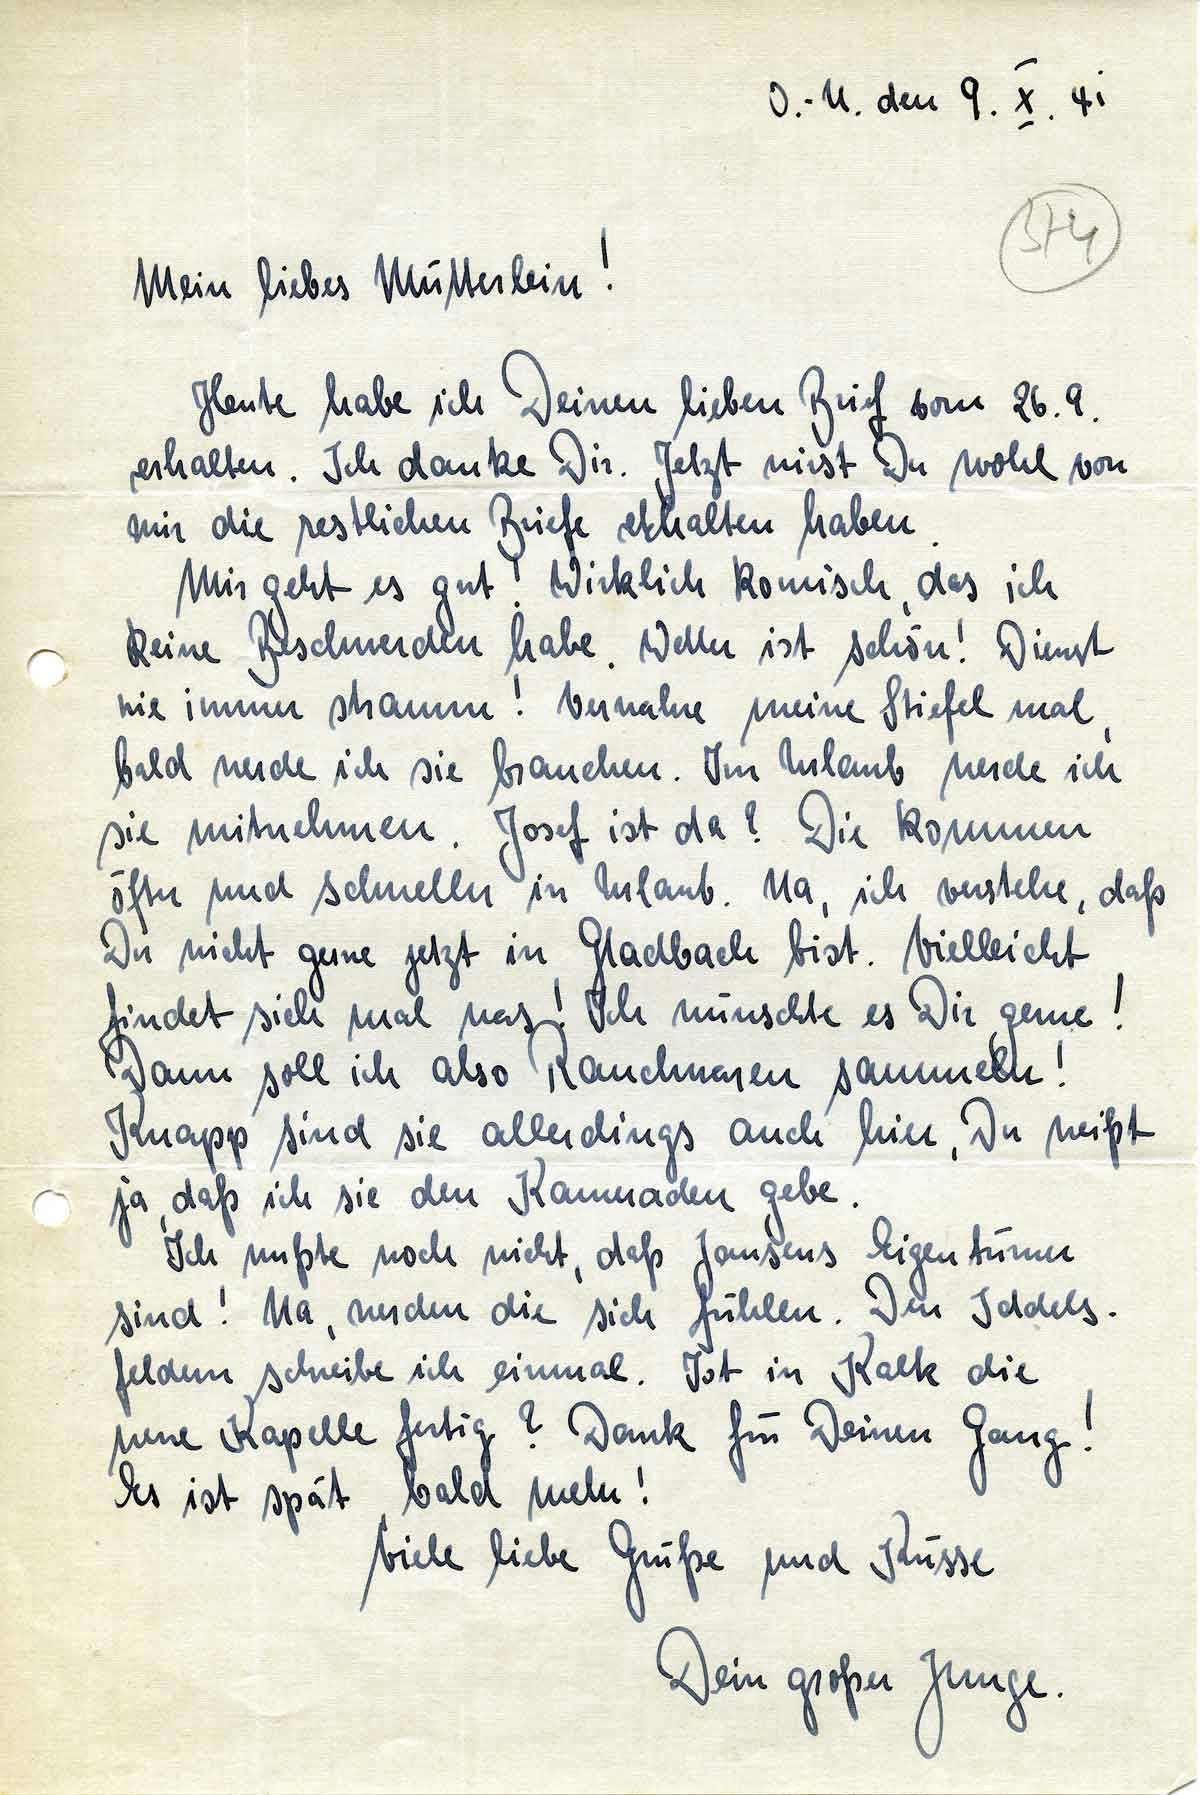 O.-U. den 9. X. 41
374
Mein liebes Mütterlein!
Heute habe ich Deinen lieben Brief vom 26.9.
erhalten. Ich danke Dir. Jetzt wirst Du wohl von
mir die restlichen Briefe erhalten haben.
Mir geht es gut! Wirklich komisch, das ich
keine Beschwerden habe. Wetter ist schön! Dienst
wie immer stramm! Verwahre meine Stiefel mal,
bald werde ich sie brauchen. Im Urlaub werde ich
sie mitnehmen. Josef ist da? Die kommen
öfter und schneller in Urlaub. Na, ich verstehe, daß
Du nicht gerne jetzt in Gladbach bist. Vielleicht
findet sich mal was! Ich wünschte es Dir gerne!
Dann soll ich also Rauchwaren sammeln!
Knapp sind sie allerdings auch hier, Du weißt
ja, daß ich sie den Kameraden gebe.
Ich wußte noch nicht, daß Jansens Eigentümer
sind! Na, werden die sich fühlen. Den Iddels-
feldern schreibe ich einmal. Ist in Kalk die
neue Kapelle fertig? Dank für Deinen Gang!
Es ist spät, bald mehr!
Viele liebe Grüße und Küsse
Dein großer Junge.